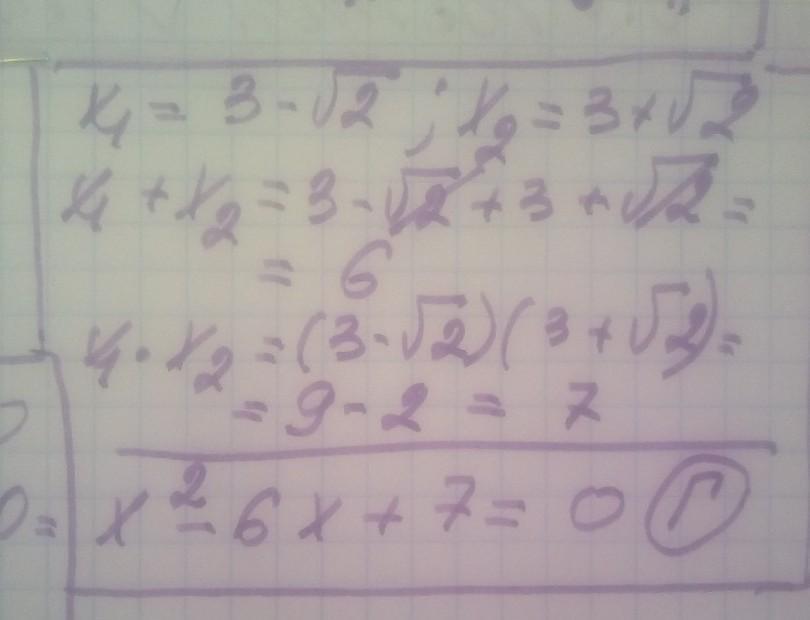 x₁ = 3 - √2 ; x₂ = 3 + √2
x₁ + x₂ = 3 - √2 + 3 + √2 =
= 6
x₁ · x₂ = (3 - √2)(3 + √2) =
= 9 - 2 = 7
x² - 6x + 7 = 0 Г
0 =